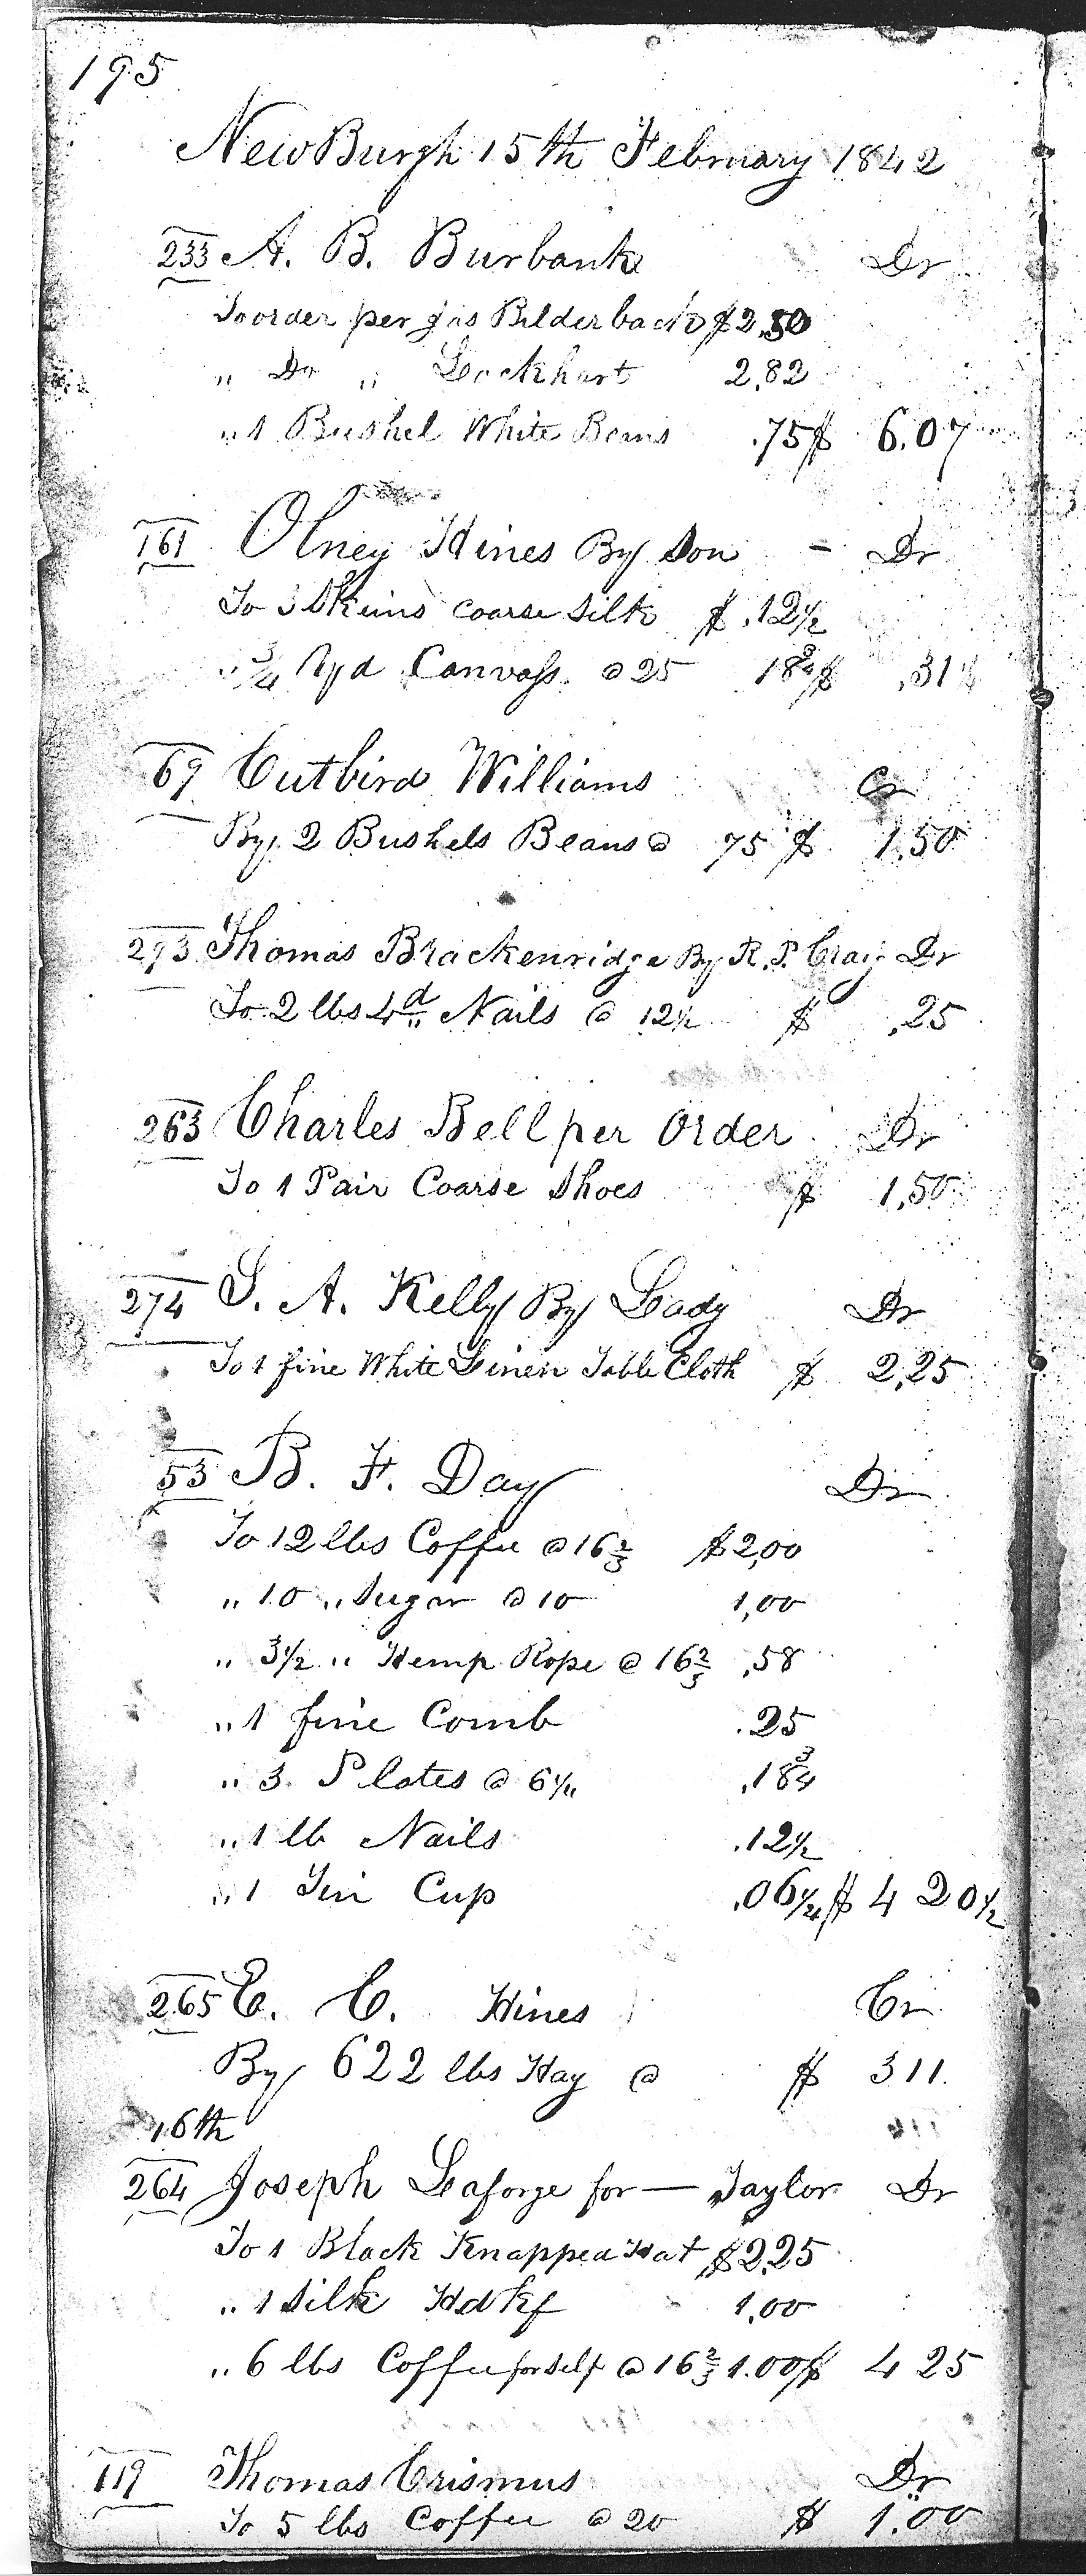 195
NewBurgh 15th February 1842
233 A. B. Burbank Dr
To order per Jas Bilderback $2,50
" Do " Lockhart 2,82
" 1 Bushel White Beans .75 $ 6.07
161 Olney Hines By Son - Dr
To 3 Skeins coarse Silk $ .12½
" ¾ Yd Canvass @ 25 18¾ $ ,31¼
69 Cutbird Williams Cr
By 2 Bushels Beans @ 75 $ 1,50
293 Thomas Brackenridge By R. P. Craig Dr
To 2 lbs 4d Nails @ 12½ $ ,25
263 Charles Bell per Order Dr
To 1 Pair Coarse Shoes $ 1,50
274 S. A. Kelly By Lady Dr
To 1 fine White Linen Table Cloth $ 2,25
53 B. F. Day Dr
To 12 lbs Coffee @ 16⅔ $2,00
" 10 " Sugar @ 10 1,00
" 3½ " Hemp Rope @ 16⅔ ,58
" 1 fine Comb .25
" 3 Plates @ 6¼ ,18¾
" 1 lb Nails .12½
" 1 Tin Cup .06¼ $ 4 20½
265 E. C. Hines Cr
By 622 lbs Hay @ $ 311.
16th
264 Joseph Laforge for — Taylor Dr
To 1 Black Knapped Hat $2,25
" 1 Silk Hdkf 1,00
" 6 lbs Coffee for self @ 16⅔ 1.00 $ 4 25
119 Thomas Crismus Dr
To 5 lbs Coffee @ 20 $ 1.00